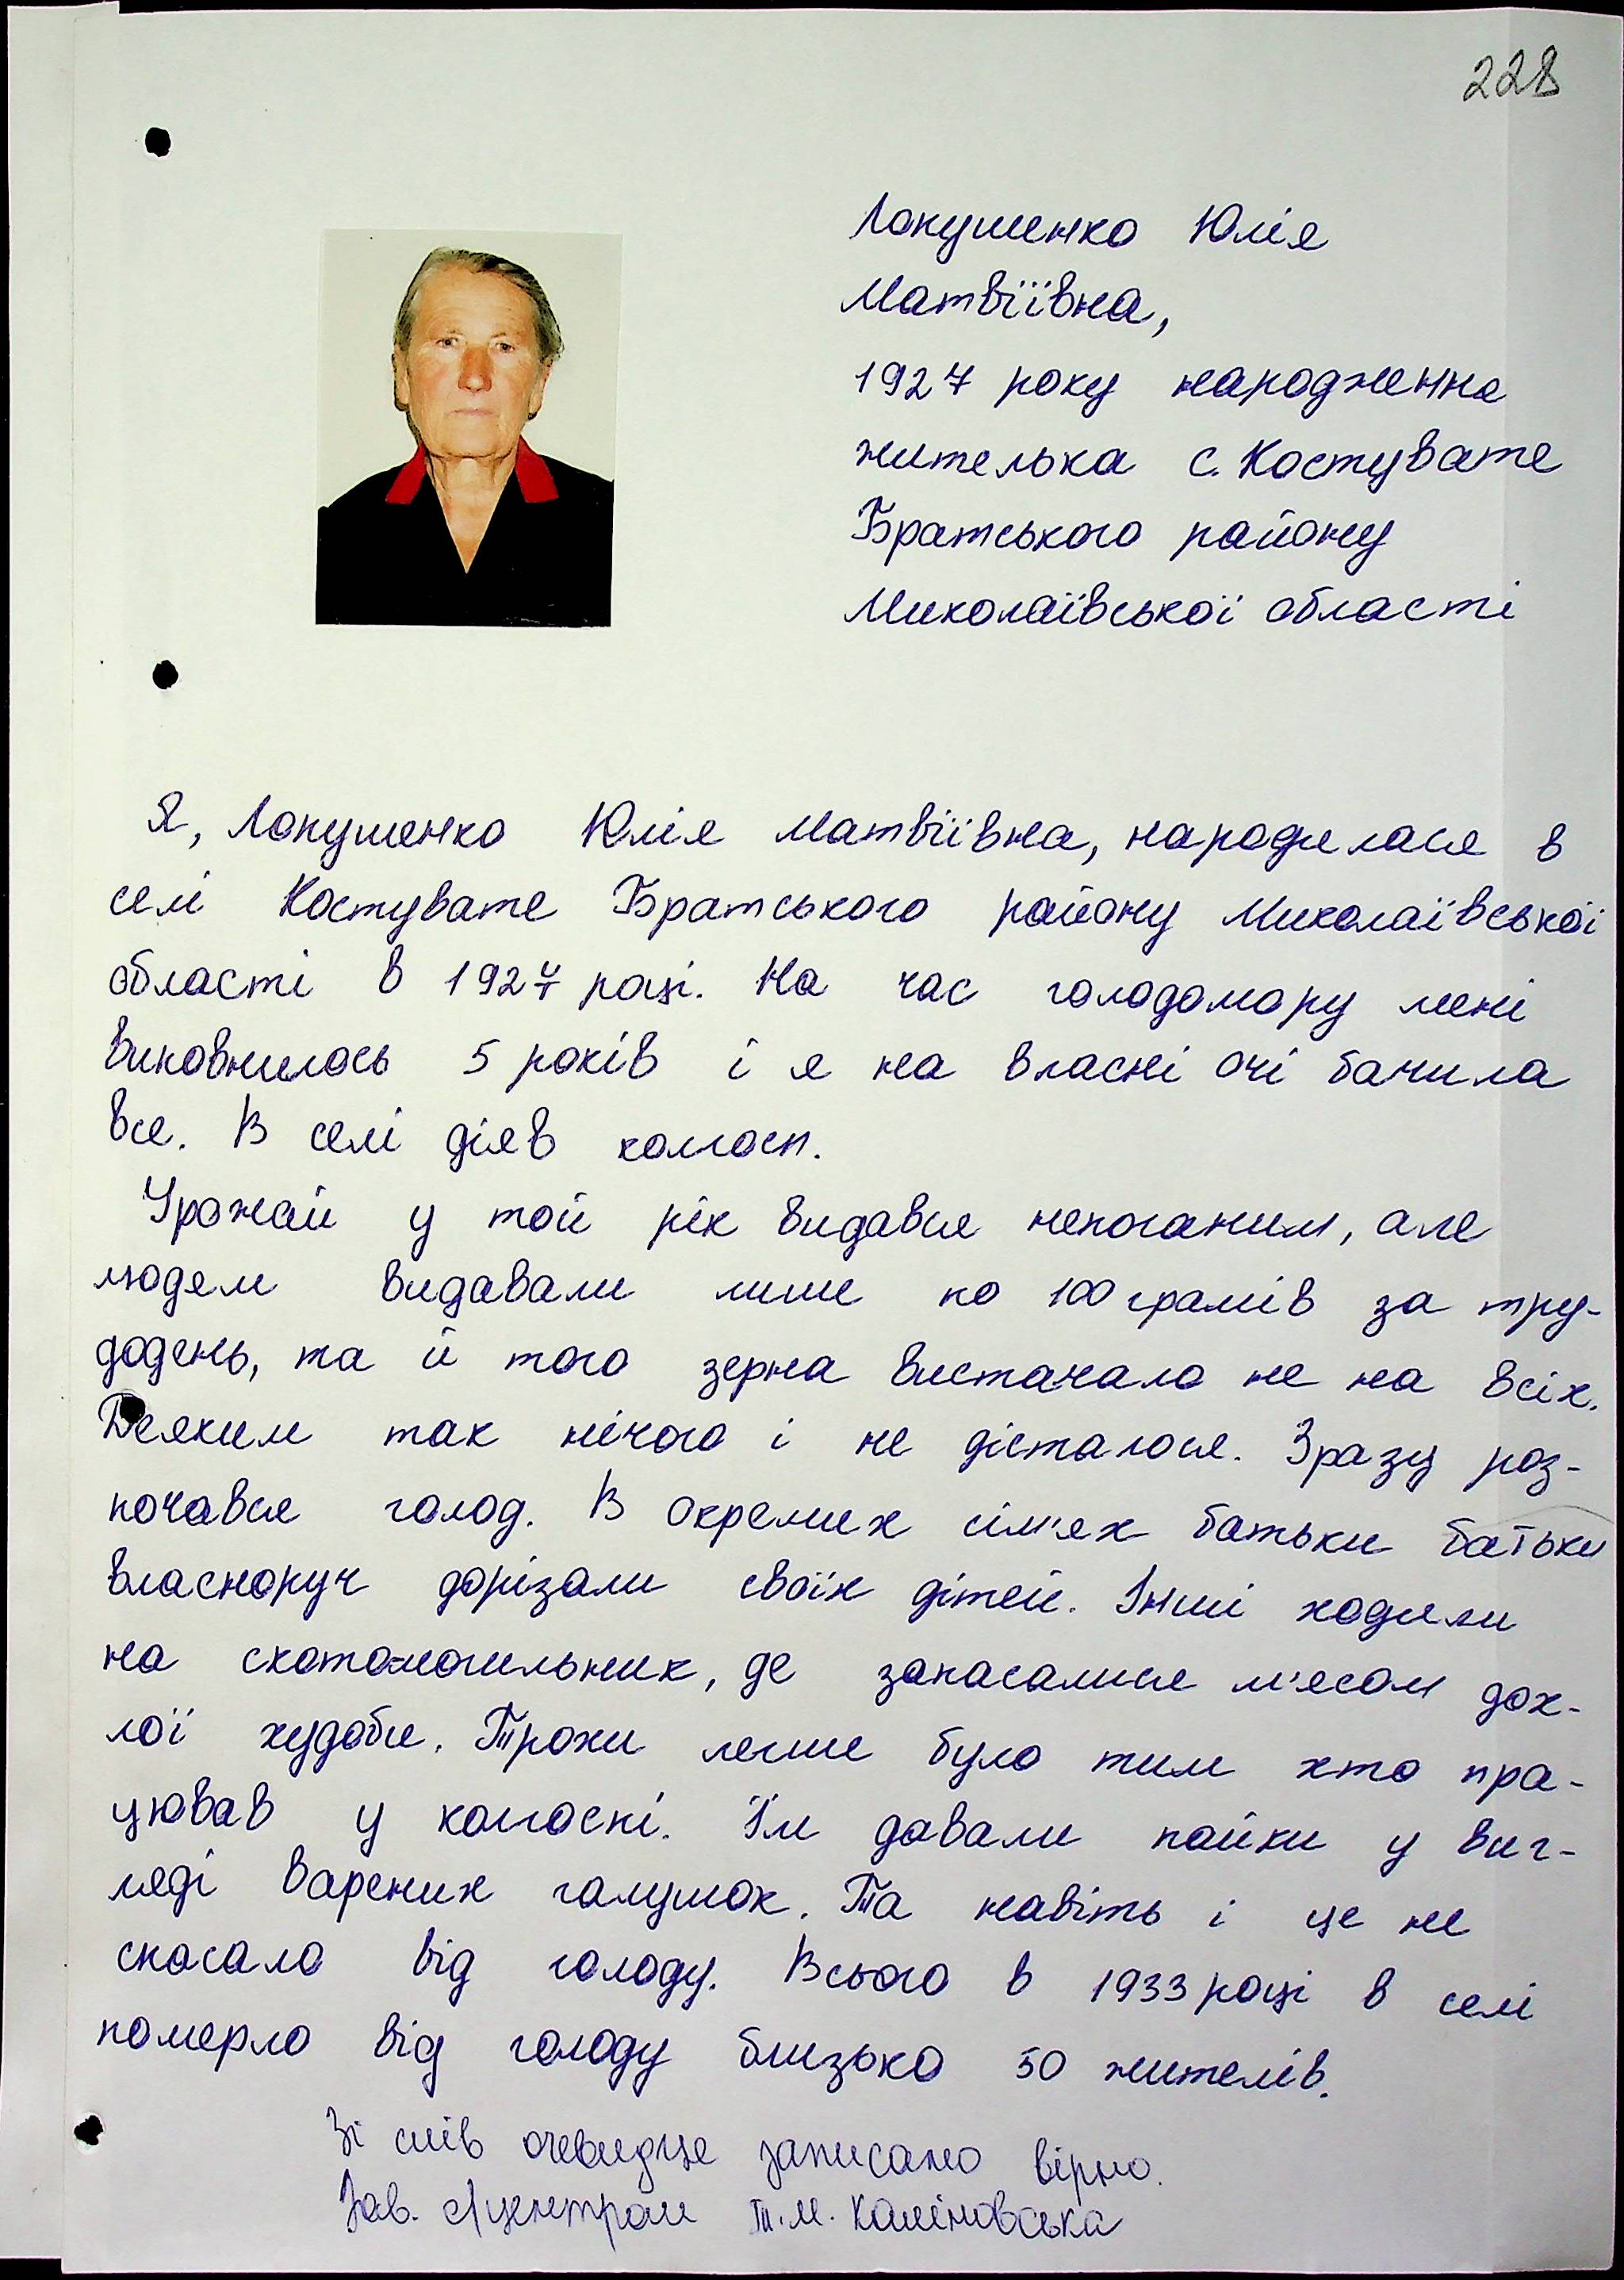 228
Лопушенко Юлія
Матвіївна,
1927 року народження
жителька с. Костувате
Братського району
Миколаївської області
Я, Лопушенко Юлія Матвіївна, народилася в
селі Костувате Братського району Миколаївської
області в 1927 році. На час голодомору мені
виповнилось 5 років і я на власні очі бачила
все. В селі діяв колгосп.
Урожай у той рік видався непоганим, але
людям видавали лише по 100 грамів за тру-
додень, та й того зерна вистачало не на всіх.
Деяким так нічого і не дісталося. Зразу роз-
почався голод. В окремих сім'ях батьки батьки
власноруч дорізали своїх дітей. Інші ходили
на скотомогильник, де запасалися м'ясом дох-
лої худоби. Трохи легше було тим хто пра-
цював у колгоспі. Їм давали пайки у виг-
ляді варених галушок. Та навіть і це не
спасало від голоду. Всього в 1933 році в селі
померло від голоду близько 50 жителів.
Зі слів очевидця записано вірно.
Зав. Т.М. Каліновська